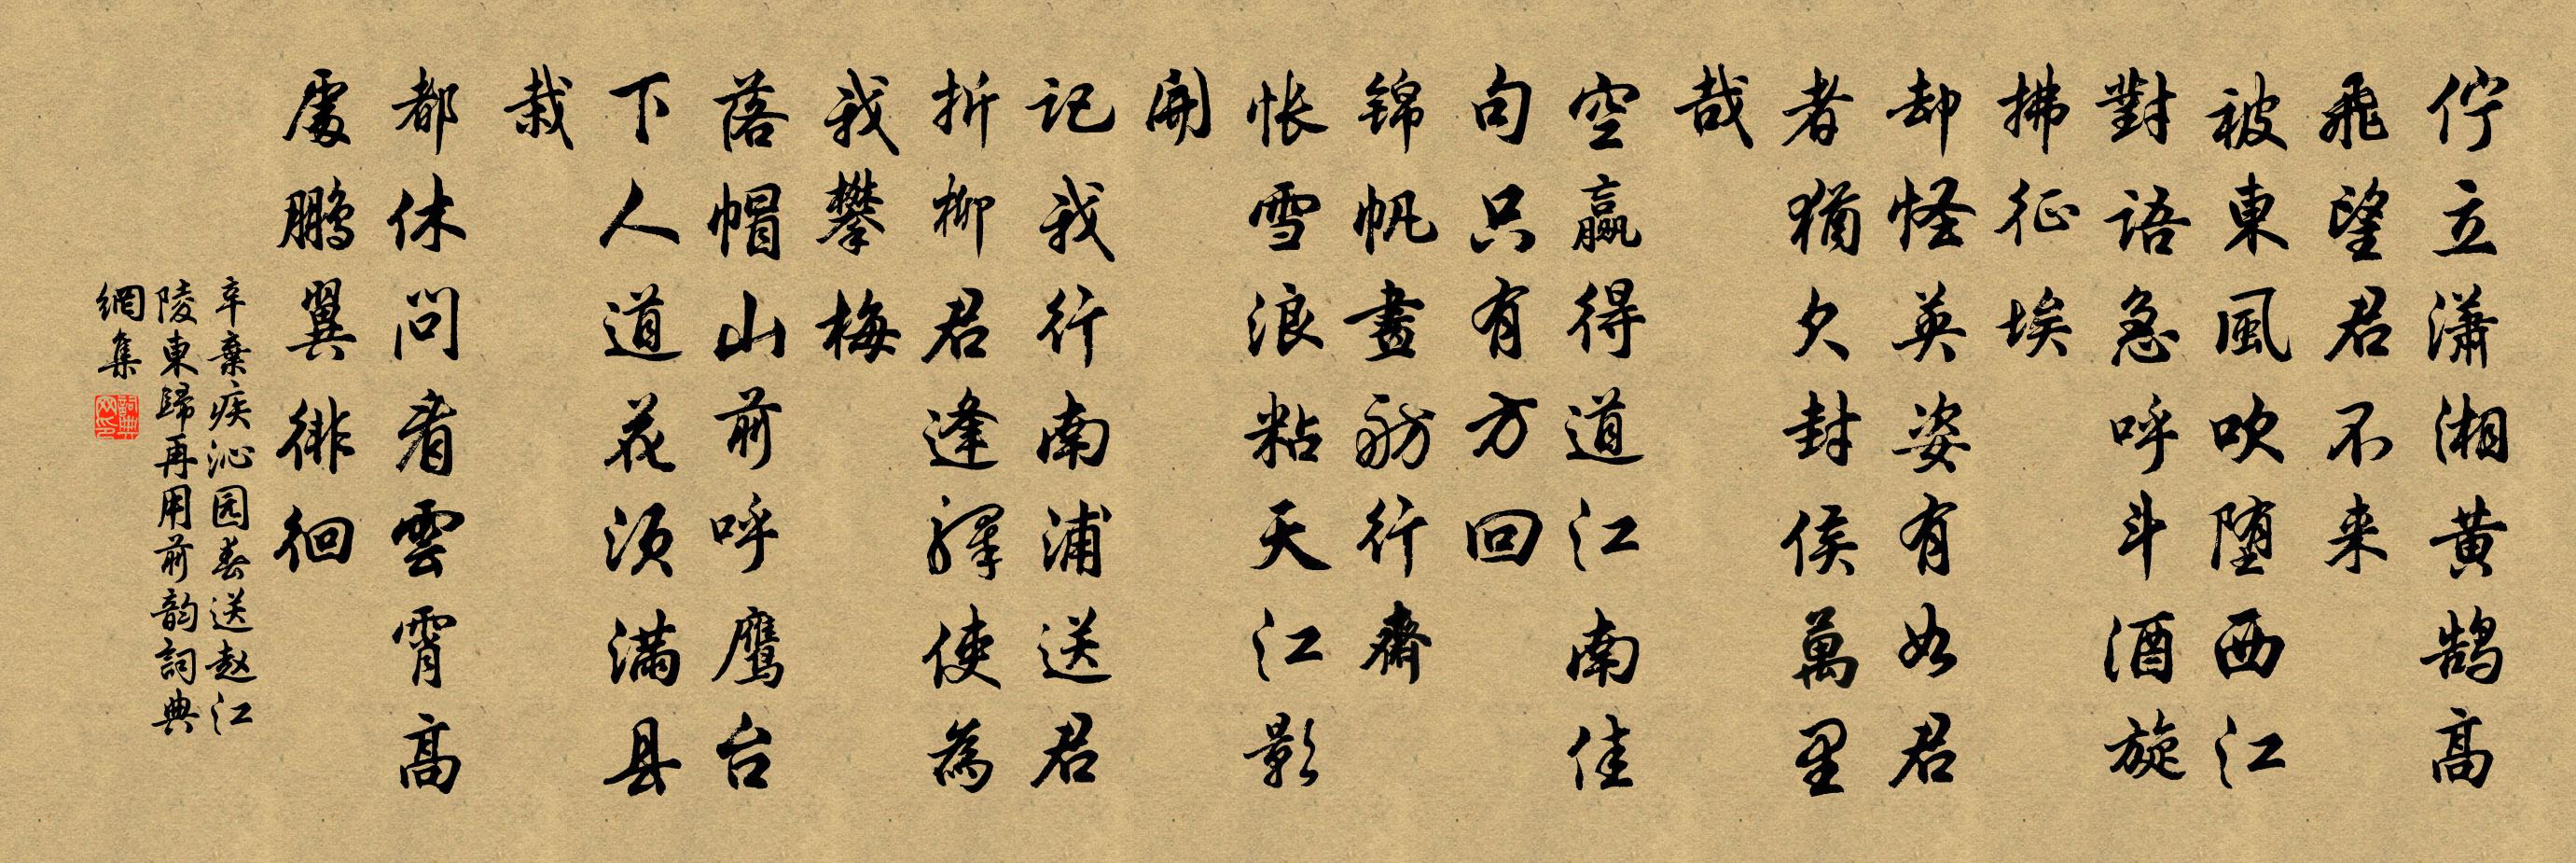 伫立潇湘黄鹄高
飛望君不来
被東風吹堕西江
對語急呼斗酒旋
拂征埃
却怪英姿有如君
者猶欠封侯萬里
哉
空赢得道江南佳
句只有方回
锦帆畫舫行齋
怅雪浪粘天江影
開
记我行南浦送君
折柳君逢驿使為
我攀梅
落帽山前呼鹰台
下人道花须满县
栽
都休问看雲霄高
處鹏翼徘徊
辛棄疾沁园春送赵江
陵東歸再用前韵詞典
網集
詞典网印